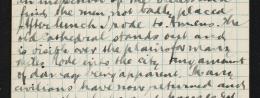 find the men not badly placed
After lunch rode to Amiens. The
old Cathedral stands out and
is visible over the plain for many
miles. Rode into the city. Any amount
of damage very apparent. Many
civilians have now returned and